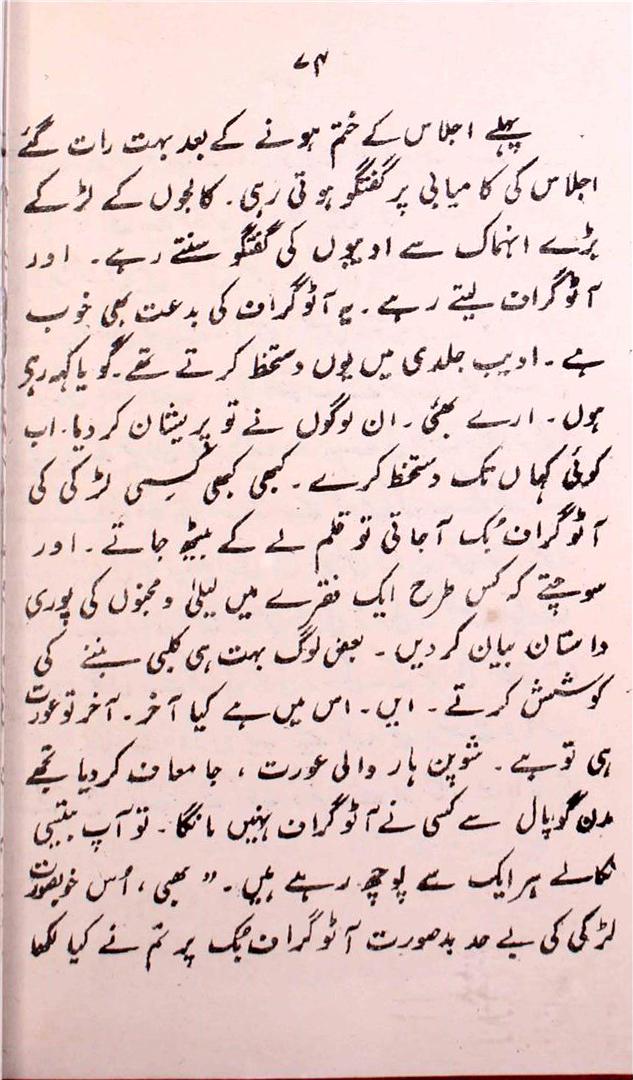 ۷۴
پہلے اجلاس کے ختم ہونے کے بعد بہت رات گئے
اجلاس کی کامیابی پر گفتگو ہوتی رہی۔ کالجوں کے لڑکے
بڑے انہماک سے ادیبوں کی گفتگو سنتے رہے۔ اور
آٹوگراف لیتے رہے۔ یہ آٹوگراف کی بدعت بھی خوب
ہے۔ ادیب جلدی میں یوں دستخط کرتے تھے۔ گویا کہہ رہے
ہوں۔ ارے بھئی۔ ان لوگوں نے تو پریشان کر دیا۔ اب
کوئی کہاں تک دستخط کرے۔ کبھی کبھی کسی لڑکی کی
آٹوگراف بُک آجاتی تو قلم لے کے بیٹھ جاتے۔ اور
سوچتے کہ کس طرح ایک فقرے میں لیلیٰ و مجنوں کی پوری
داستان بیان کر دیں۔ بعض لوگ بہت ہی کلبی بننے کی
کوشش کرتے۔ ایں۔ اس میں ہے کیا آخر۔ آخر تو عورت
ہی تو ہے۔ شوپن ہار والی عورت، جا معاف کر دیا تجھے
مدن گوپال سے کسی نے آٹوگراف نہیں مانگا۔ تو آپ بتیسی
نکالے ہر ایک سے پوچھ رہے ہیں۔ ”بھئی، اُس خوبصورت
لڑکی کی بے حد بدصورت آٹوگراف بُک پر تم نے کیا لکھا